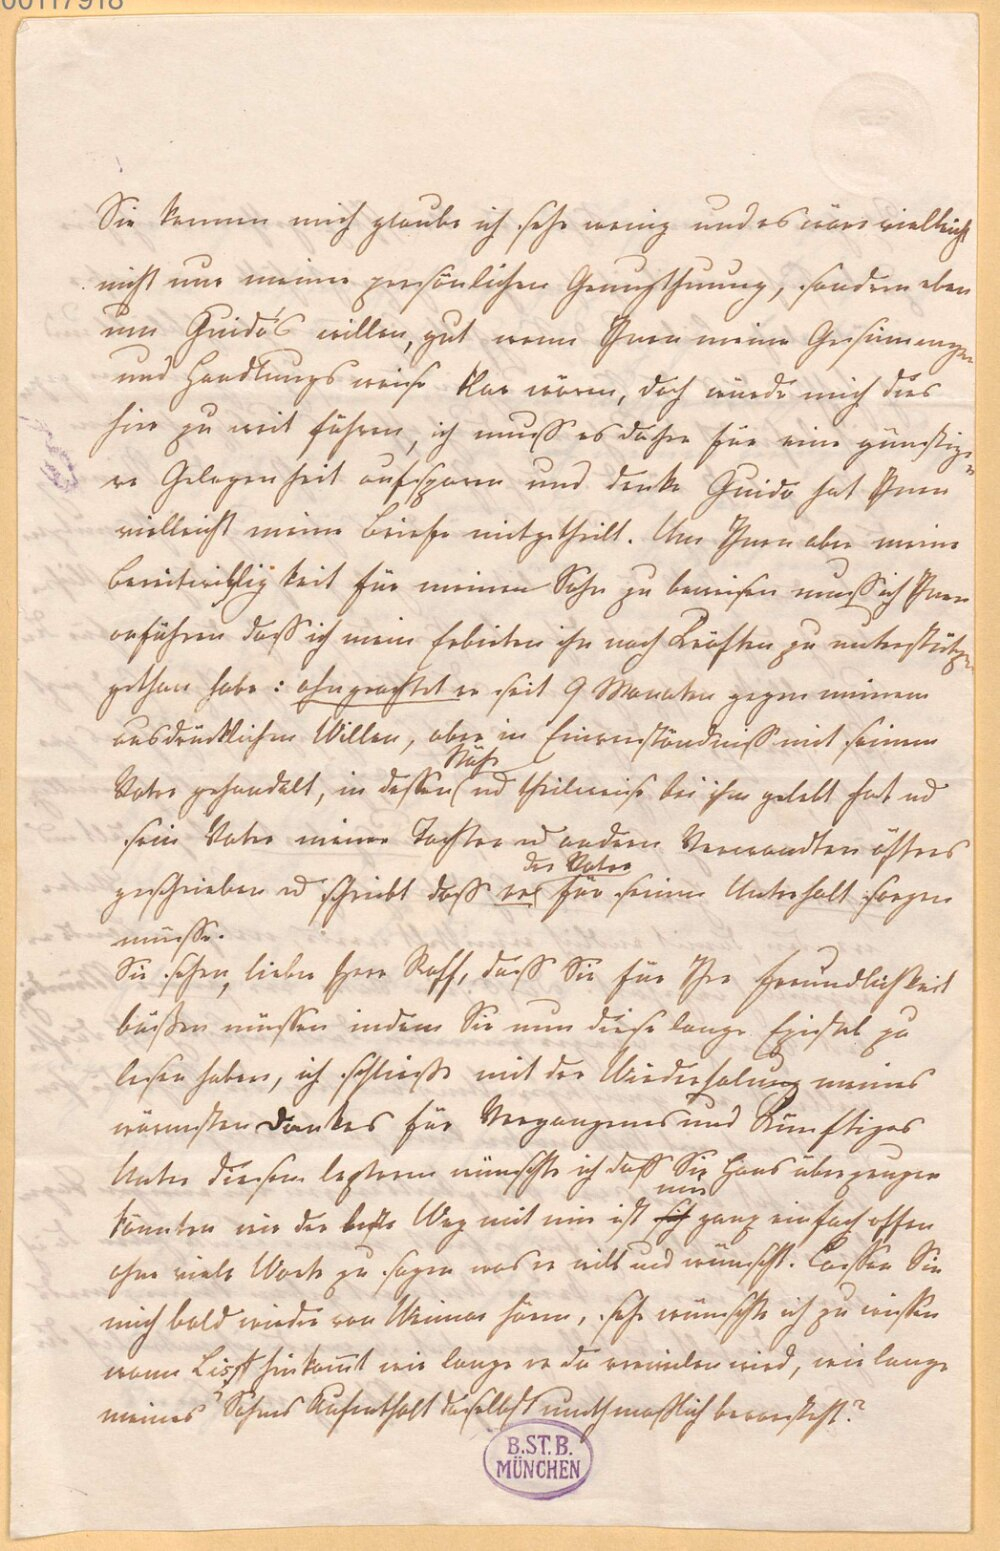 00117918
Sie kennen mich glaube ich sehr wenig und es wäre vielleicht
nicht nur meiner persönlichen Genugthuung, sondern eben
um Guido's willen, gut wenn Ihnen meine Gesinnungen
und Handlungsweise klar wären, doch würde mich dies
hier zu weit führen, ich muss es daher für eine günstige-
re Gelegenheit aufsparen und denke Guido hat Ihnen
vielleicht meine Briefe mitgetheilt. Um Ihnen aber meine
Bereitwilligkeit für meinen Sohn zu beweisen muss ich Ihnen
anführen dass ich mein Erbieten ihn nach Kräften zu unterstützen
gethan habe: ohngeachtet er seit 9 Monaten gegen meinen
ausdrücklichen Willen, aber in Einverständniss mit seinem
Nähe
Vater gehandelt, in dessen ud theilweise bei ihm gelebt hat ud
sein Vater meiner Tochter ud andern Verwandten öfters
der Vater
geschrieben ud schreibt dass er für seinen Unterhalt sorgen
müsse.
Sie sehen, lieber Herr Raff, dass Sie für Ihre Freundlichkeit
büßen müssen indem Sie nun diese lange Epistel zu
lesen haben, ich schließe mit der Wiederholung meines
wärmsten Dankes für Vergangenes und Künftiges
Unter diesem letzteren wünschte ich dass Sie Hans überzeugen
mir
könnten wie der beste Weg mit mir ist sich ganz einfach offen
ohne viele Worte zu sagen was er will und wünscht. Lassen Sie
mich bald wieder von Weimar hören, sehr wünschte ich zu wissen
wann Liszt hinkommt wie lange er da verweilen wird, wie lange
meines Sohnes Aufenthalt daselbst muthmaßlich bevorsteht?
B.ST.B.
MÜNCHEN